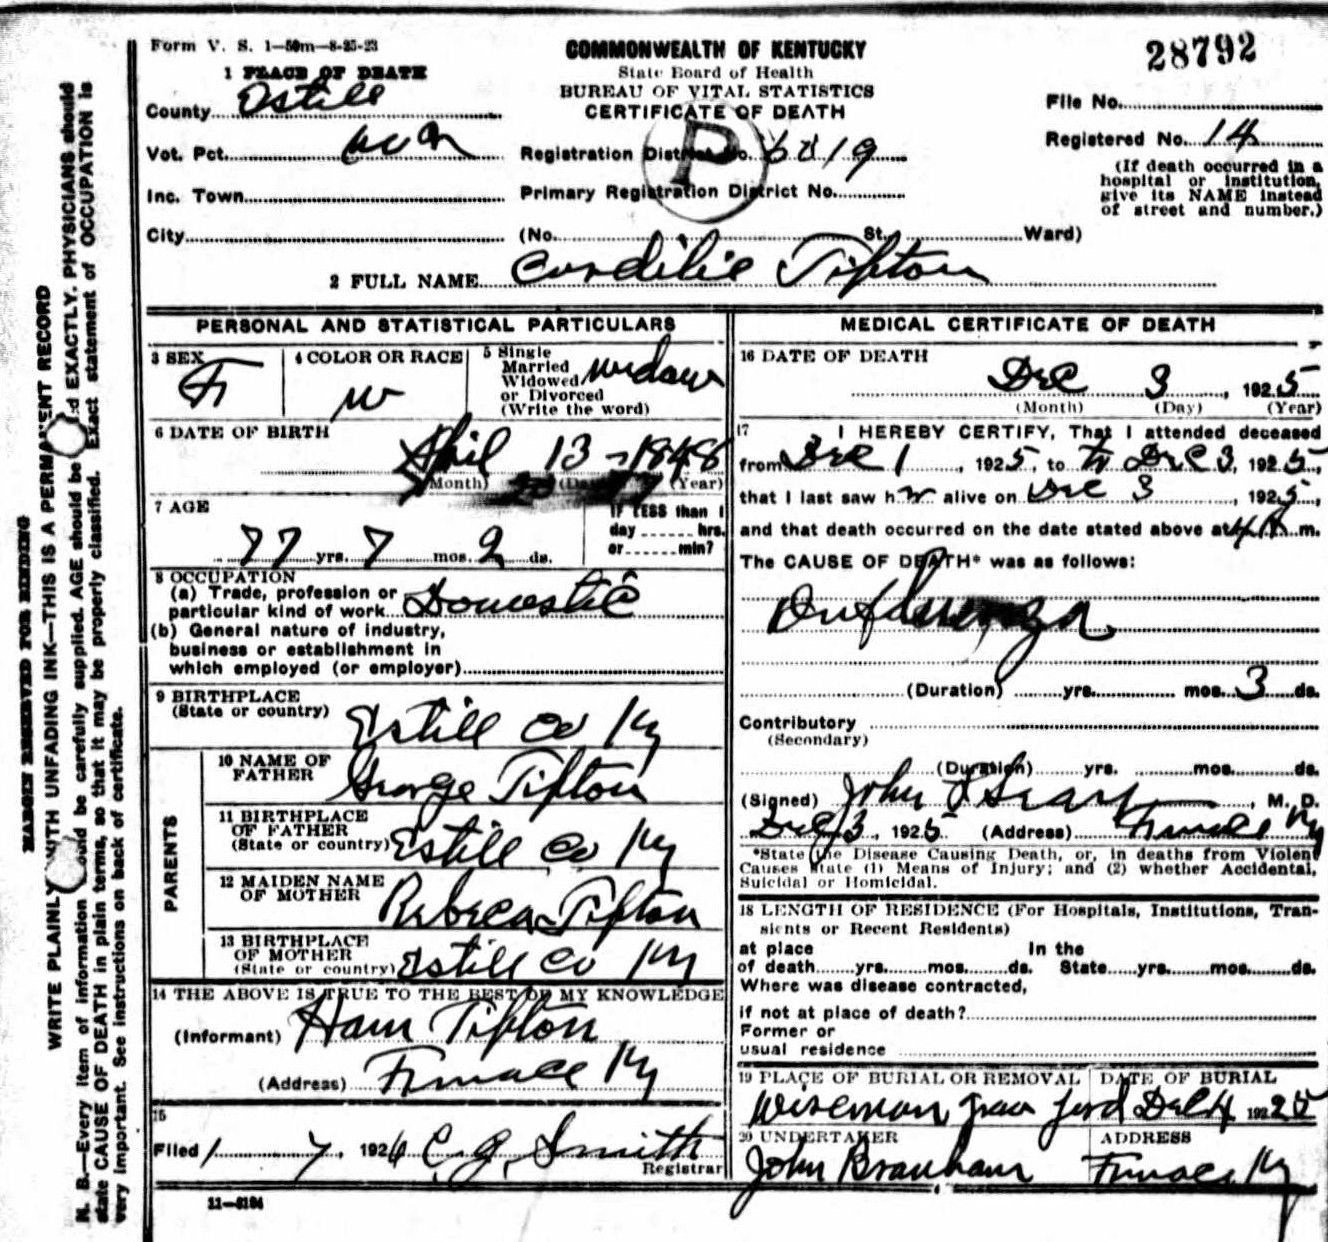 Form V. S. 1—50m—8-25-23
COMMONWEALTH OF KENTUCKY
State Board of Health
BUREAU OF VITAL STATISTICS
CERTIFICATE OF DEATH
28792
File No.
Registered No. 14
(If death occurred in a hospital or institution, give its NAME instead of street and number.)
1 PLACE OF DEATH
County Estill
Vot. Pct.
Inc. Town
City
P
Registration District No. 6819
Primary Registration District No.
(No. St. Ward)
2 FULL NAME Cordilie Tipton
PERSONAL AND STATISTICAL PARTICULARS
3 SEX F
4 COLOR OR RACE W
5 Single Married Widowed or Divorced (Write the word) widow
6 DATE OF BIRTH
April 13 - 1848
(Month) (Day) (Year)
7 AGE
77 yrs. 7 mos. 2 ds.
IF LESS than 1 day hrs. or min?
8 OCCUPATION
(a) Trade, profession or particular kind of work Domestic
(b) General nature of industry, business or establishment in which employed (or employer)
9 BIRTHPLACE
(State or country) Estill Co Ky
PARENTS
10 NAME OF FATHER George Tipton
11 BIRTHPLACE OF FATHER
(State or country) Estill Co Ky
12 MAIDEN NAME OF MOTHER Rebeca Tipton
13 BIRTHPLACE OF MOTHER
(State or country) Estill Co Ky
14 THE ABOVE IS TRUE TO THE BEST OF MY KNOWLEDGE
(Informant) Ham Tipton
(Address) Furnace Ky
15
Filed 1 7, 1926 C. G. Smith
Registrar
11—8184
MEDICAL CERTIFICATE OF DEATH
16 DATE OF DEATH
Dec 3, 1925
(Month) (Day) (Year)
17 I HEREBY CERTIFY, That I attended deceased
from Dec 1, 1925, to Dec 3, 1925,
that I last saw her alive on Dec 3, 1925,
and that death occurred on the date stated above at 4 A m.
The CAUSE OF DEATH* was as follows:
Influenza
(Duration) yrs. mos. 3 ds.
Contributory
(Secondary)
(Duration) yrs. mos. ds.
(Signed) John, M. D.
Dec 3, 1925 (Address) Furnace Ky
*State the Disease Causing Death, or, in deaths from Violent
Causes state (1) Means of Injury; and (2) whether Accidental,
Suicidal or Homicidal.
18 LENGTH OF RESIDENCE (For Hospitals, Institutions, Transients or Recent Residents)
at place of death yrs. mos. ds. In the State yrs. mos. ds.
Where was disease contracted,
if not at place of death?
Former or
usual residence
19 PLACE OF BURIAL OR REMOVAL
Wiseman
DATE OF BURIAL
Dec 4 1925
20 UNDERTAKER
John Branham
ADDRESS
Furnace Ky
MARGIN RESERVED FOR BINDING
WRITE PLAINLY WITH UNFADING INK—THIS IS A PERMANENT RECORD
N. B.—Every item of information should be carefully supplied. AGE should be stated EXACTLY. PHYSICIANS should
state CAUSE OF DEATH in plain terms, so that it may be properly classified. Exact statement of OCCUPATION is
very important. See instructions on back of certificate.